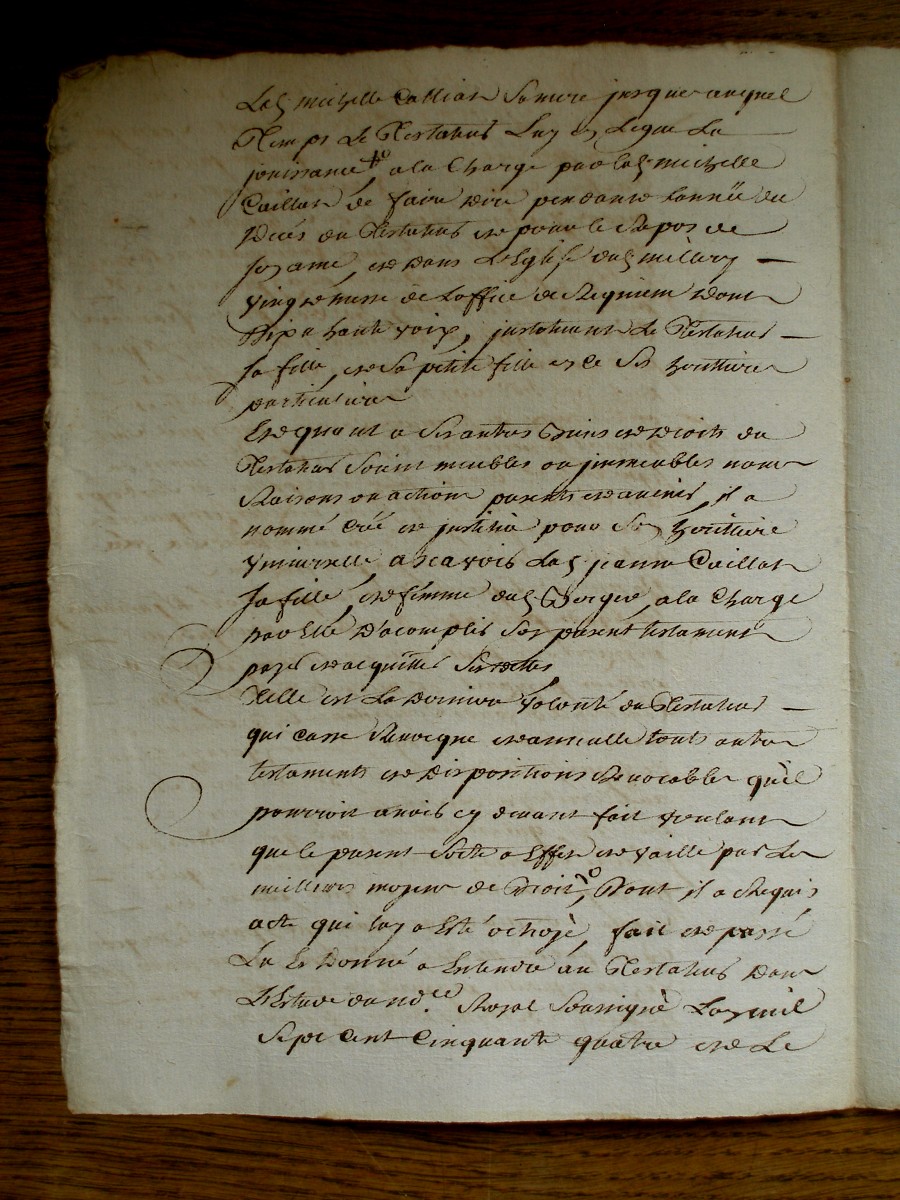 Lad michelle Caillat Sa mere jusque auquel
temps Le Testateur Luy en Legue La
jouissance, a la Charge par lad michelle
Caillat de faire dire pendant lannée du
deces du Testateur et pour le Repos de
son ame, et dans L'Eglise dud millery
vingt messe de Loffice de Requiem dont
dix a haute voix, instituant Le Testateur
sa fille, et sa petite fille en ce Ses heritieres
particulieres
Et quant a Ses autres biens et droits du
Testateur Soient meubles ou immeubles noms
Raisons ou actions presents et avenir, il a
nommé créé et institué pour Son heritiere
Universelle, a scavoir Lad jeanne Caillat
sa fille, et femme dud, a la Charge
par Elle d'acomplir Son present testament
payer et acquitter Ses dettes
Telle est La derniere volonté du Testateur
qui Casse Revoque et annulle touts autre
testaments et dispositions Revocables qu'il
pourroit avoir cy devant fait voulant
que le present Sorte a Effet et vaille par Les
meilleurs moyens de droit, Dont il a Requis
acte qui luy a Eté octroyé, fait et passé
Lu Et Donné a Entendre au Testateur dans
L'Etude du no.re Royal Soussigné L'an mil
Sept Cent Cinquante quatre et Le